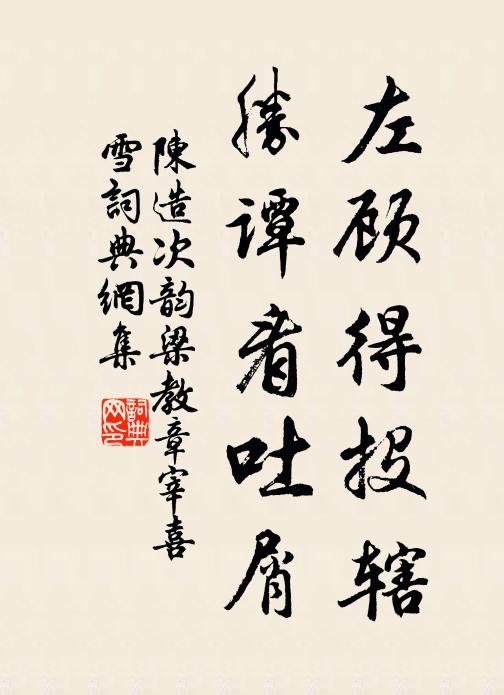 左顾得投辖
勝谭看吐屑
陳造次韵梁教章宰喜
雪詞典網集
詞典
网印